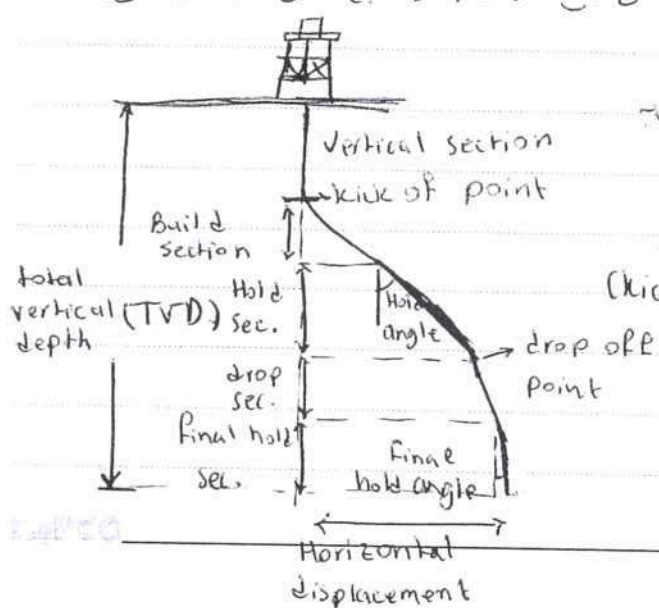 vertical section
kick of point
Build
section
total
vertical (TVD)
depth
Hold
sec.
Hold
angle
(kic
drop off
point
drop
sec.
final hold
sec.
Final
hold angle
Horizontal
displacement